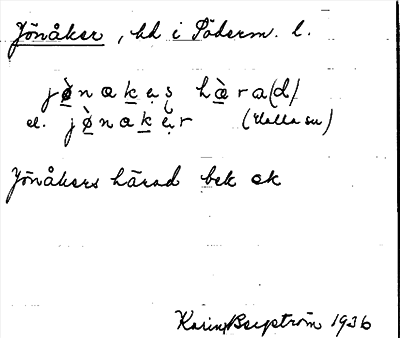 Jönåker, hd i Söderm. l.
jø̀nakəs hæ̀ra(d)
el. jø̀nakər
Jönåkers härad bek ok
Karin Bergström 1936